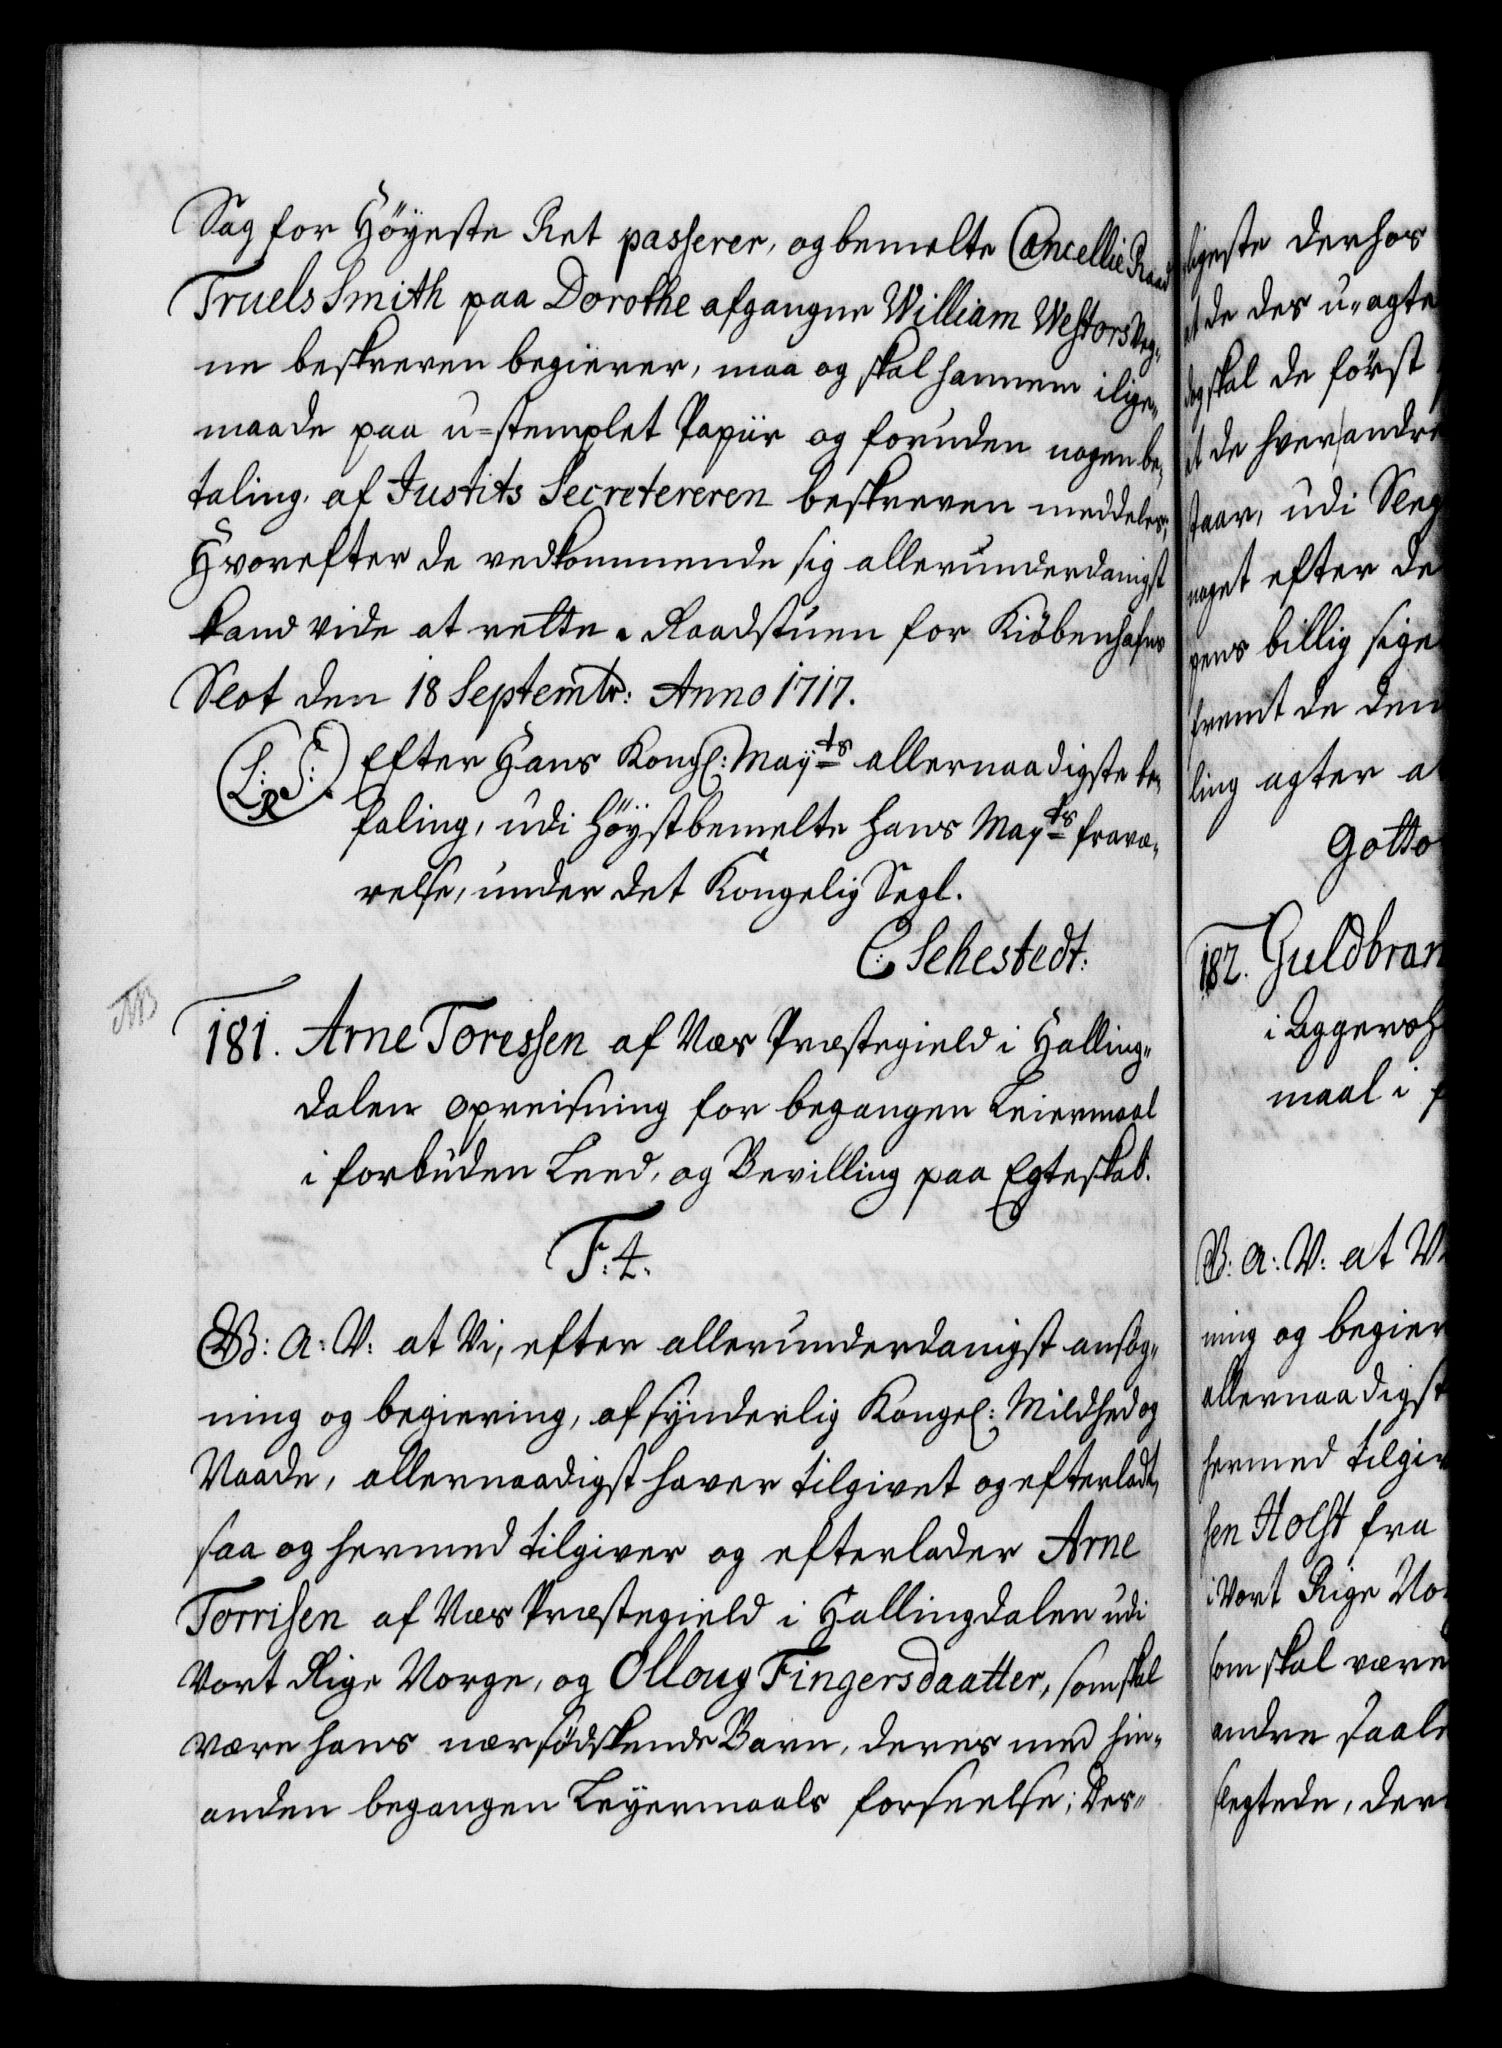 Sag for Höyeste Ret passerer, og bemelte Cancellie Raad
Truels Smith paa Dorothe afgangne William Westors Veg-
ne beskreven begierer, maa og skal hannem i lige-
maade paa u-stemplet Papiir og foruden nogen be-
taling, af Justits Secretereren beskreven meddeles;
Hvorefter de vedkommende sig allerunderdanigst
kand vide at rette. Raadstuen for Kiöbenhafns
Slot den 18 Septembr: Anno 1717.
L: S:
R
Efter Hans Kongl: May<sup>ts</sup> allernaadigste be-
faling, udi Höystbemelte Hans May<sup>ts</sup> fravæ-
relse, under det Kongelig Segl.
C: Sehestedt:
NB
181. Arne Toressen af Næs Præstegield i Halling-
dalen opreisning for begangen Leiermaal
i forbuden Leed, og Bevilling paa Egteskab.
F: 4.
G: A: V: at Vi, efter allerunderdanigst ansög-
ning og begiering, af synderlig Kongel: Mildhed og
Naade, allernaadigst haver tilgivet og efterladt,
saa og hermed tilgiver og efterlader Arne
Torrisen af Næs Præstegield i Hallingdalen udi
Vort Rige Norge, og Olloug Fingersdaatter, som skal
være hans nærsödskende Barn, deres med hin-
anden begangen Leyermaals forseelse; Des-
ligeste derhos
at de des u-agte
dog skal de först
at de hver andre
staar, udi Sleg
noget efter de
gens billig sige
fremt de den
ling agter a
Gotto
182. Guldbran
i Aggersh
maal i f
G: A: V: at V
ning og begier
allernaadigst
hermed tilgiv
sen Holst fra
i Vort Rige No
som skal være
andre saale
slegtede, der